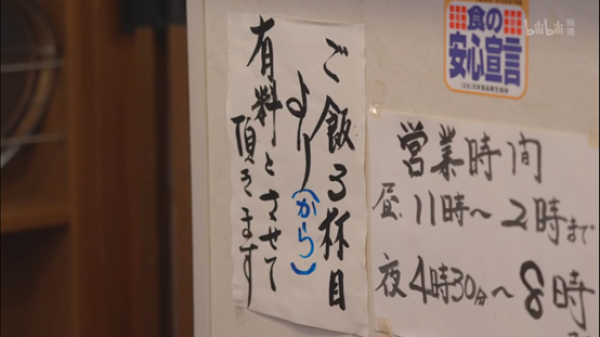 ご飯3杯目
より(から)
有料とさせて
頂きます
食の
安心宣言
営業時間
昼 11時〜2時まで
夜 4時30分〜8時
bilibili